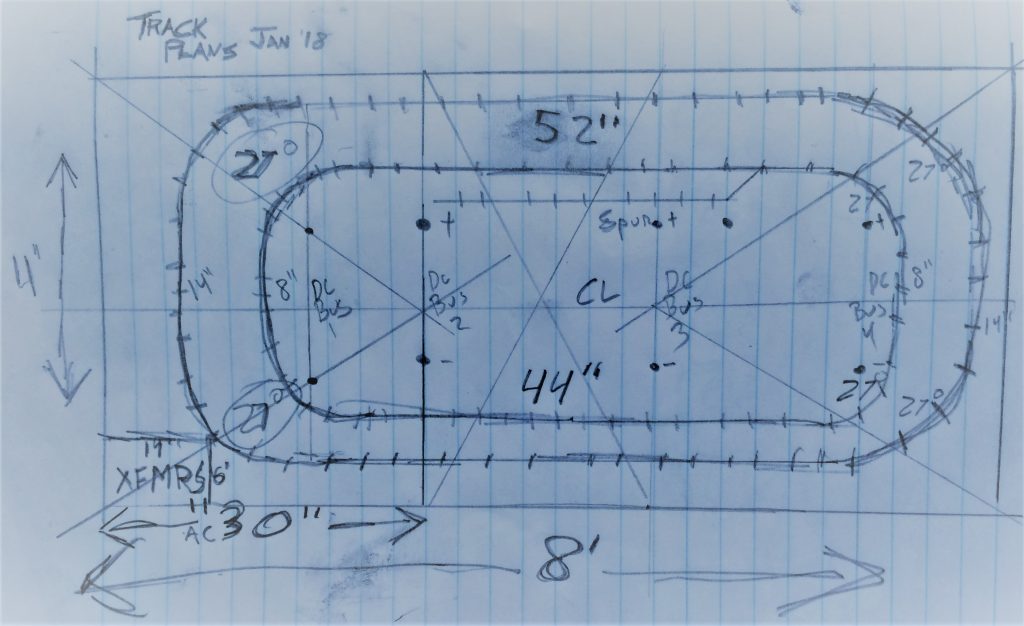 TRACK
PLANS JAN '18
52"
27°
27°
27
+
Spur +
+
4"
14"
8"
DC
BUS
1
DC
BUS
2
CL
DC
BUS
3
DC
BUS
4
8"
14"
-
-
-
44"
27°
27°
27°
XFMRS
6'
AC
30"
8'